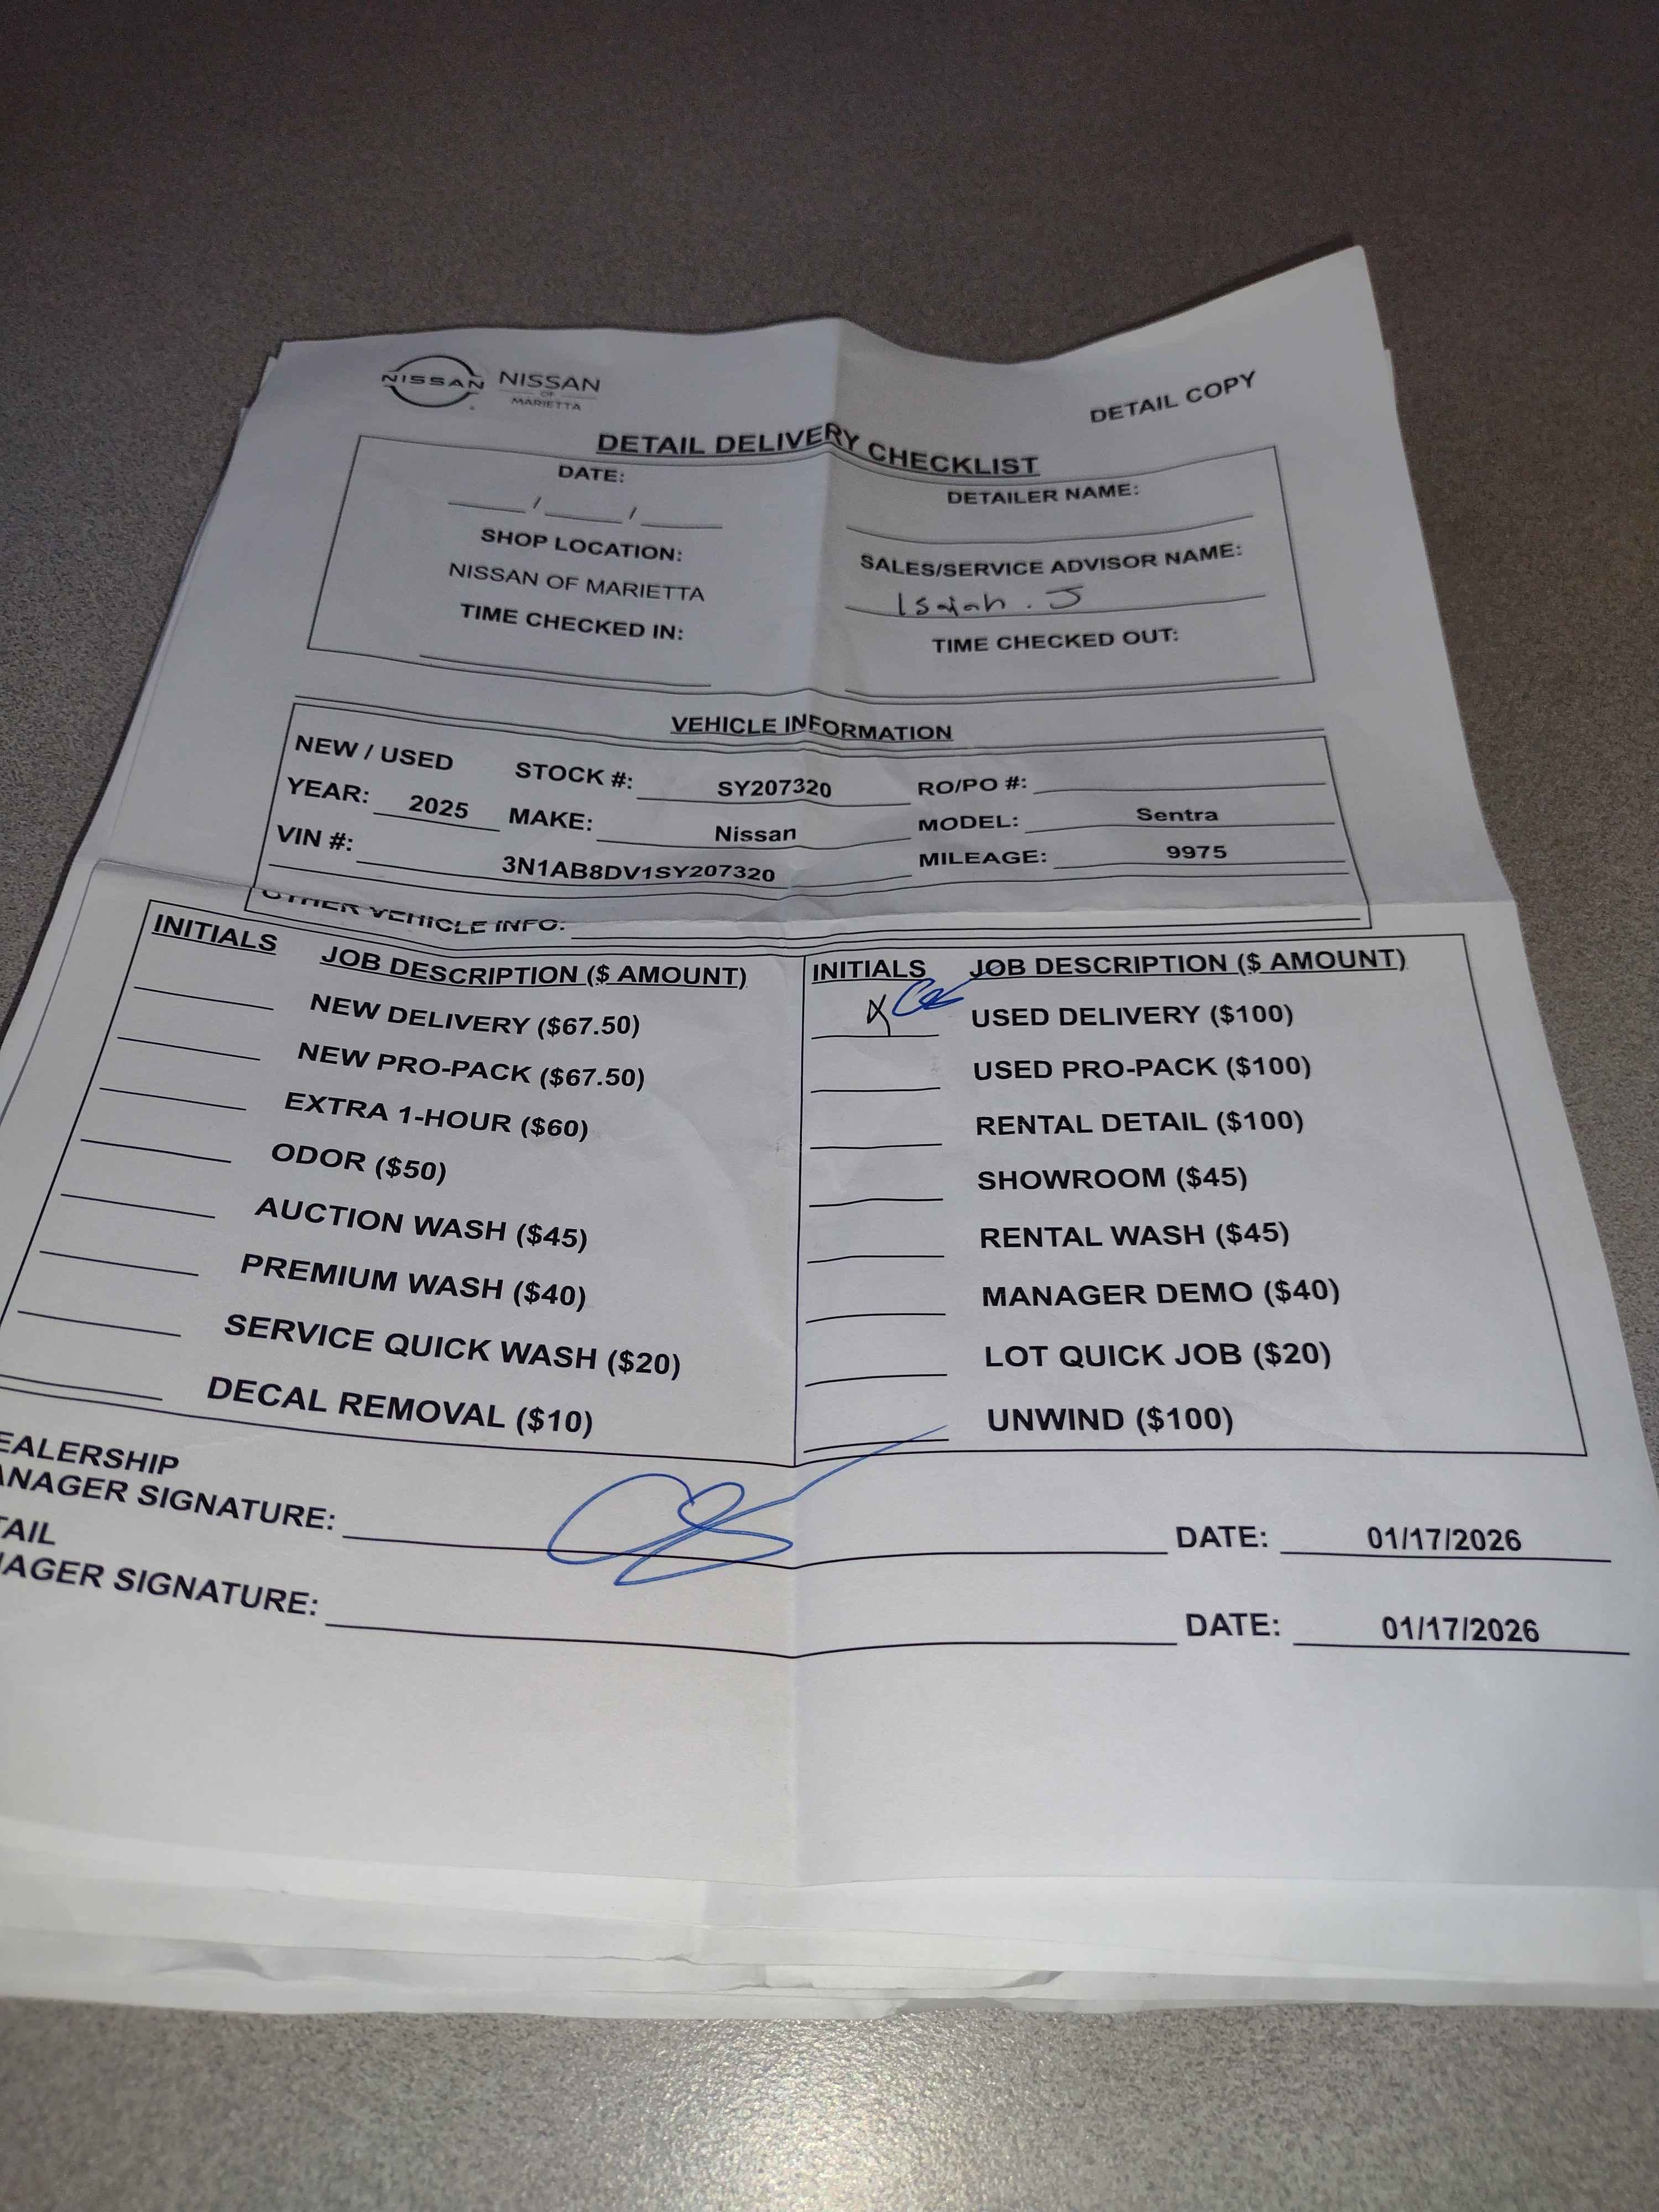 NISSAN NISSAN
OF
MARIETTA
DETAIL COPY
DETAIL DELIVERY CHECKLIST
DATE:
DETAILER NAME:
___/___/___
SHOP LOCATION:
SALES/SERVICE ADVISOR NAME:
NISSAN OF MARIETTA
Isaiah. J
TIME CHECKED IN:
TIME CHECKED OUT:
VEHICLE INFORMATION
NEW / USED STOCK #: SY207320 RO/PO #:
YEAR: 2025 MAKE: Nissan MODEL: Sentra
VIN #: 3N1AB8DV1SY207320 MILEAGE: 9975
OTHER VEHICLE INFO:
INITIALS JOB DESCRIPTION ($ AMOUNT)
NEW DELIVERY ($67.50)
NEW PRO-PACK ($67.50)
EXTRA 1-HOUR ($60)
ODOR ($50)
AUCTION WASH ($45)
PREMIUM WASH ($40)
SERVICE QUICK WASH ($20)
DECAL REMOVAL ($10)
INITIALS JOB DESCRIPTION ($ AMOUNT)
X USED DELIVERY ($100)
USED PRO-PACK ($100)
RENTAL DETAIL ($100)
SHOWROOM ($45)
RENTAL WASH ($45)
MANAGER DEMO ($40)
LOT QUICK JOB ($20)
UNWIND ($100)
EALERSHIP
ANAGER SIGNATURE: DATE: 01/17/2026
TAIL
AGER SIGNATURE: DATE: 01/17/2026